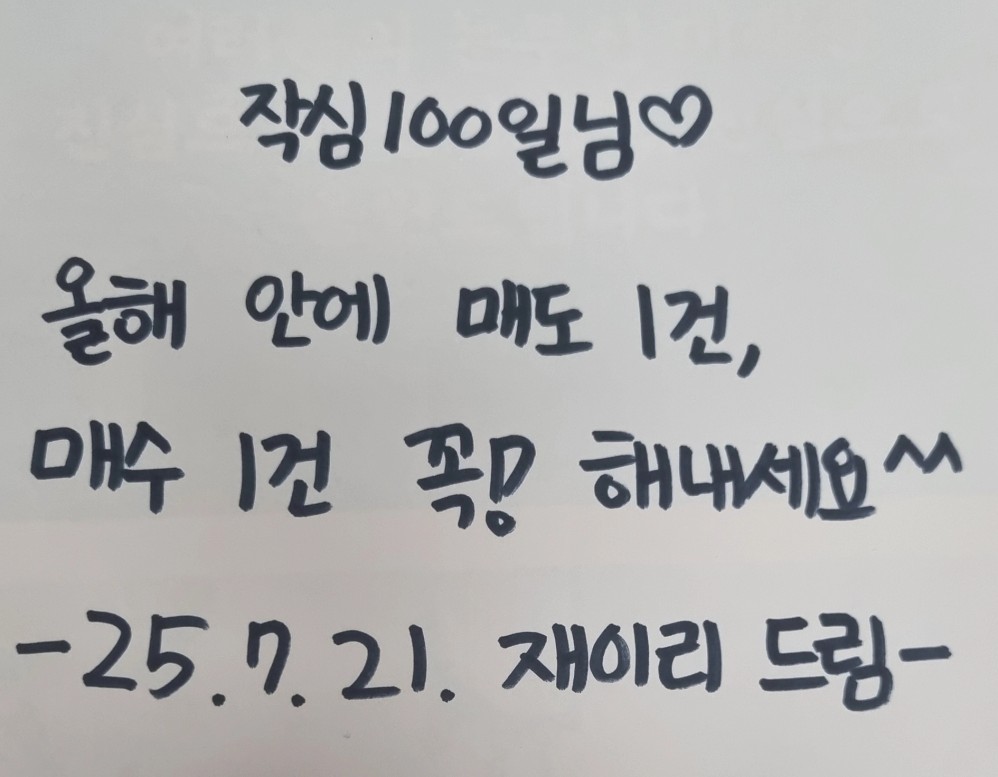 작심100일님♡
올해 안에 매도 1건,
매수 1건 꼭! 해내세요^^
-25.7.21. 재이리 드림-